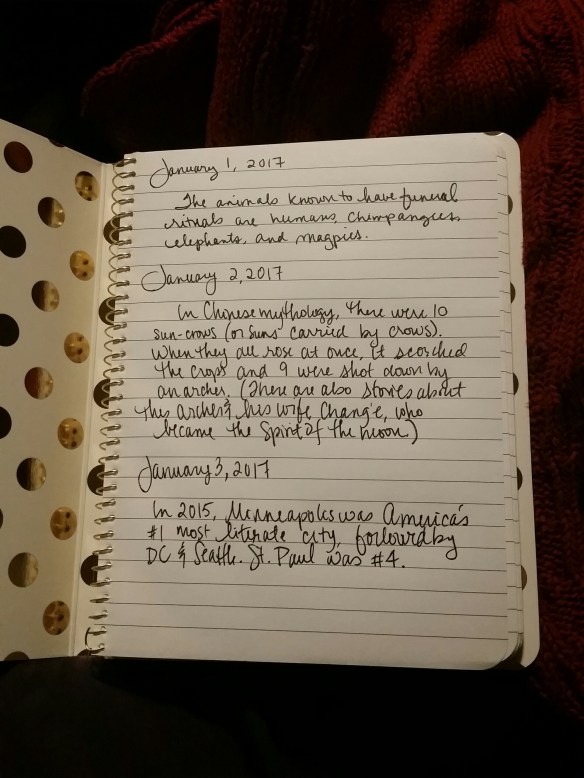 January 1, 2017
The animals known to have funeral
rituals are humans, chimpanzees,
elephants, and magpies.
January 2, 2017
In Chinese mythology, there were 10
sun-crows (or suns carried by crows).
When they all rose at once, it scorched
the crops and 9 were shot down by
an archer. (There are also stories about
this archer & his wife Chang'e, who
became the Spirit of the moon.)
January 3, 2017
In 2015, Minneapolis was America's
#1 most literate city, followed by
DC & Seattle. St. Paul was #4.